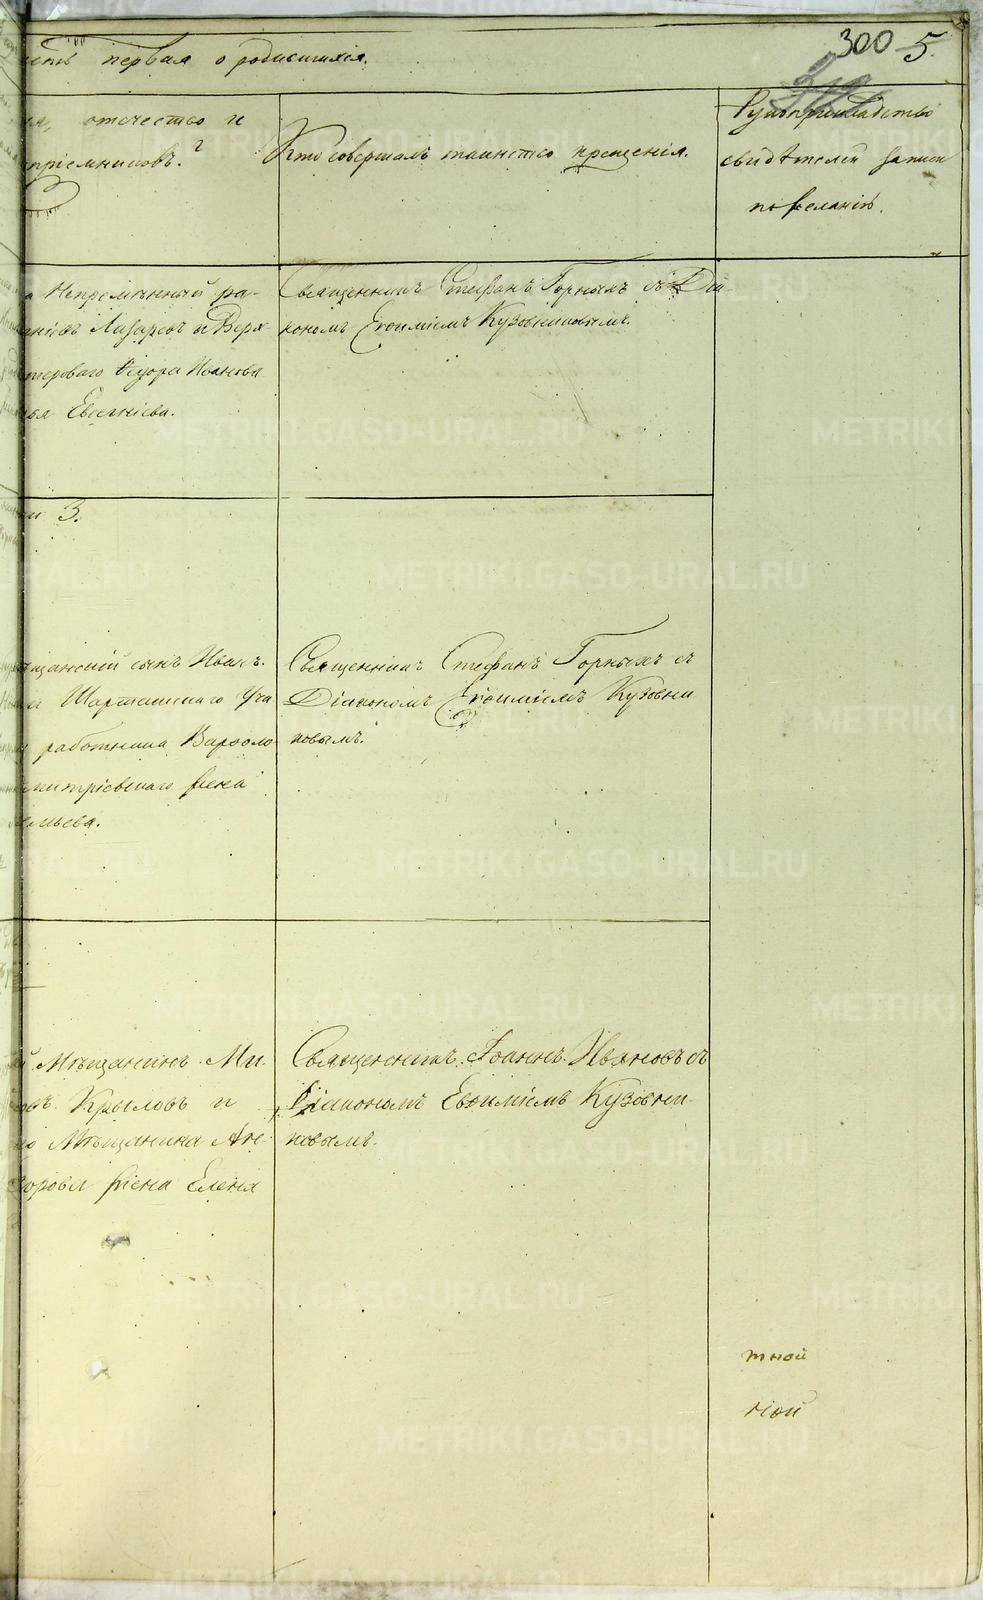 300 5.
первая о родившихся.
отечество и
прiемниковъ.
Кто совершалъ таинство крещенiя.
Рукоприкладство
свидѣтелей записи
по желанiю.
Непремѣнный ра-
Лазаревъ и Верх-
Ѳедора Иванова
Евгенiева.
Священникъ Стефанъ Горныхъ съ Дiа-
кономъ Евѳимiемъ Кузовниковымъ.
3.
сынъ Иванъ.
Шарташскаго
работника Варѳоло
жена
Священникъ Стефанъ Горныхъ съ
Дiакономъ Евѳимiемъ Кузовни
ковымъ.
Мѣщанинъ Ми-
Крыловъ и
Мѣщанина Ан-
жена Елена
Священникъ Iоаннъ Ивановъ съ
Дiакономъ Евѳимiемъ Кузовни-
ковымъ.
тной
гiой
METRIKI.GASO-URAL.RU